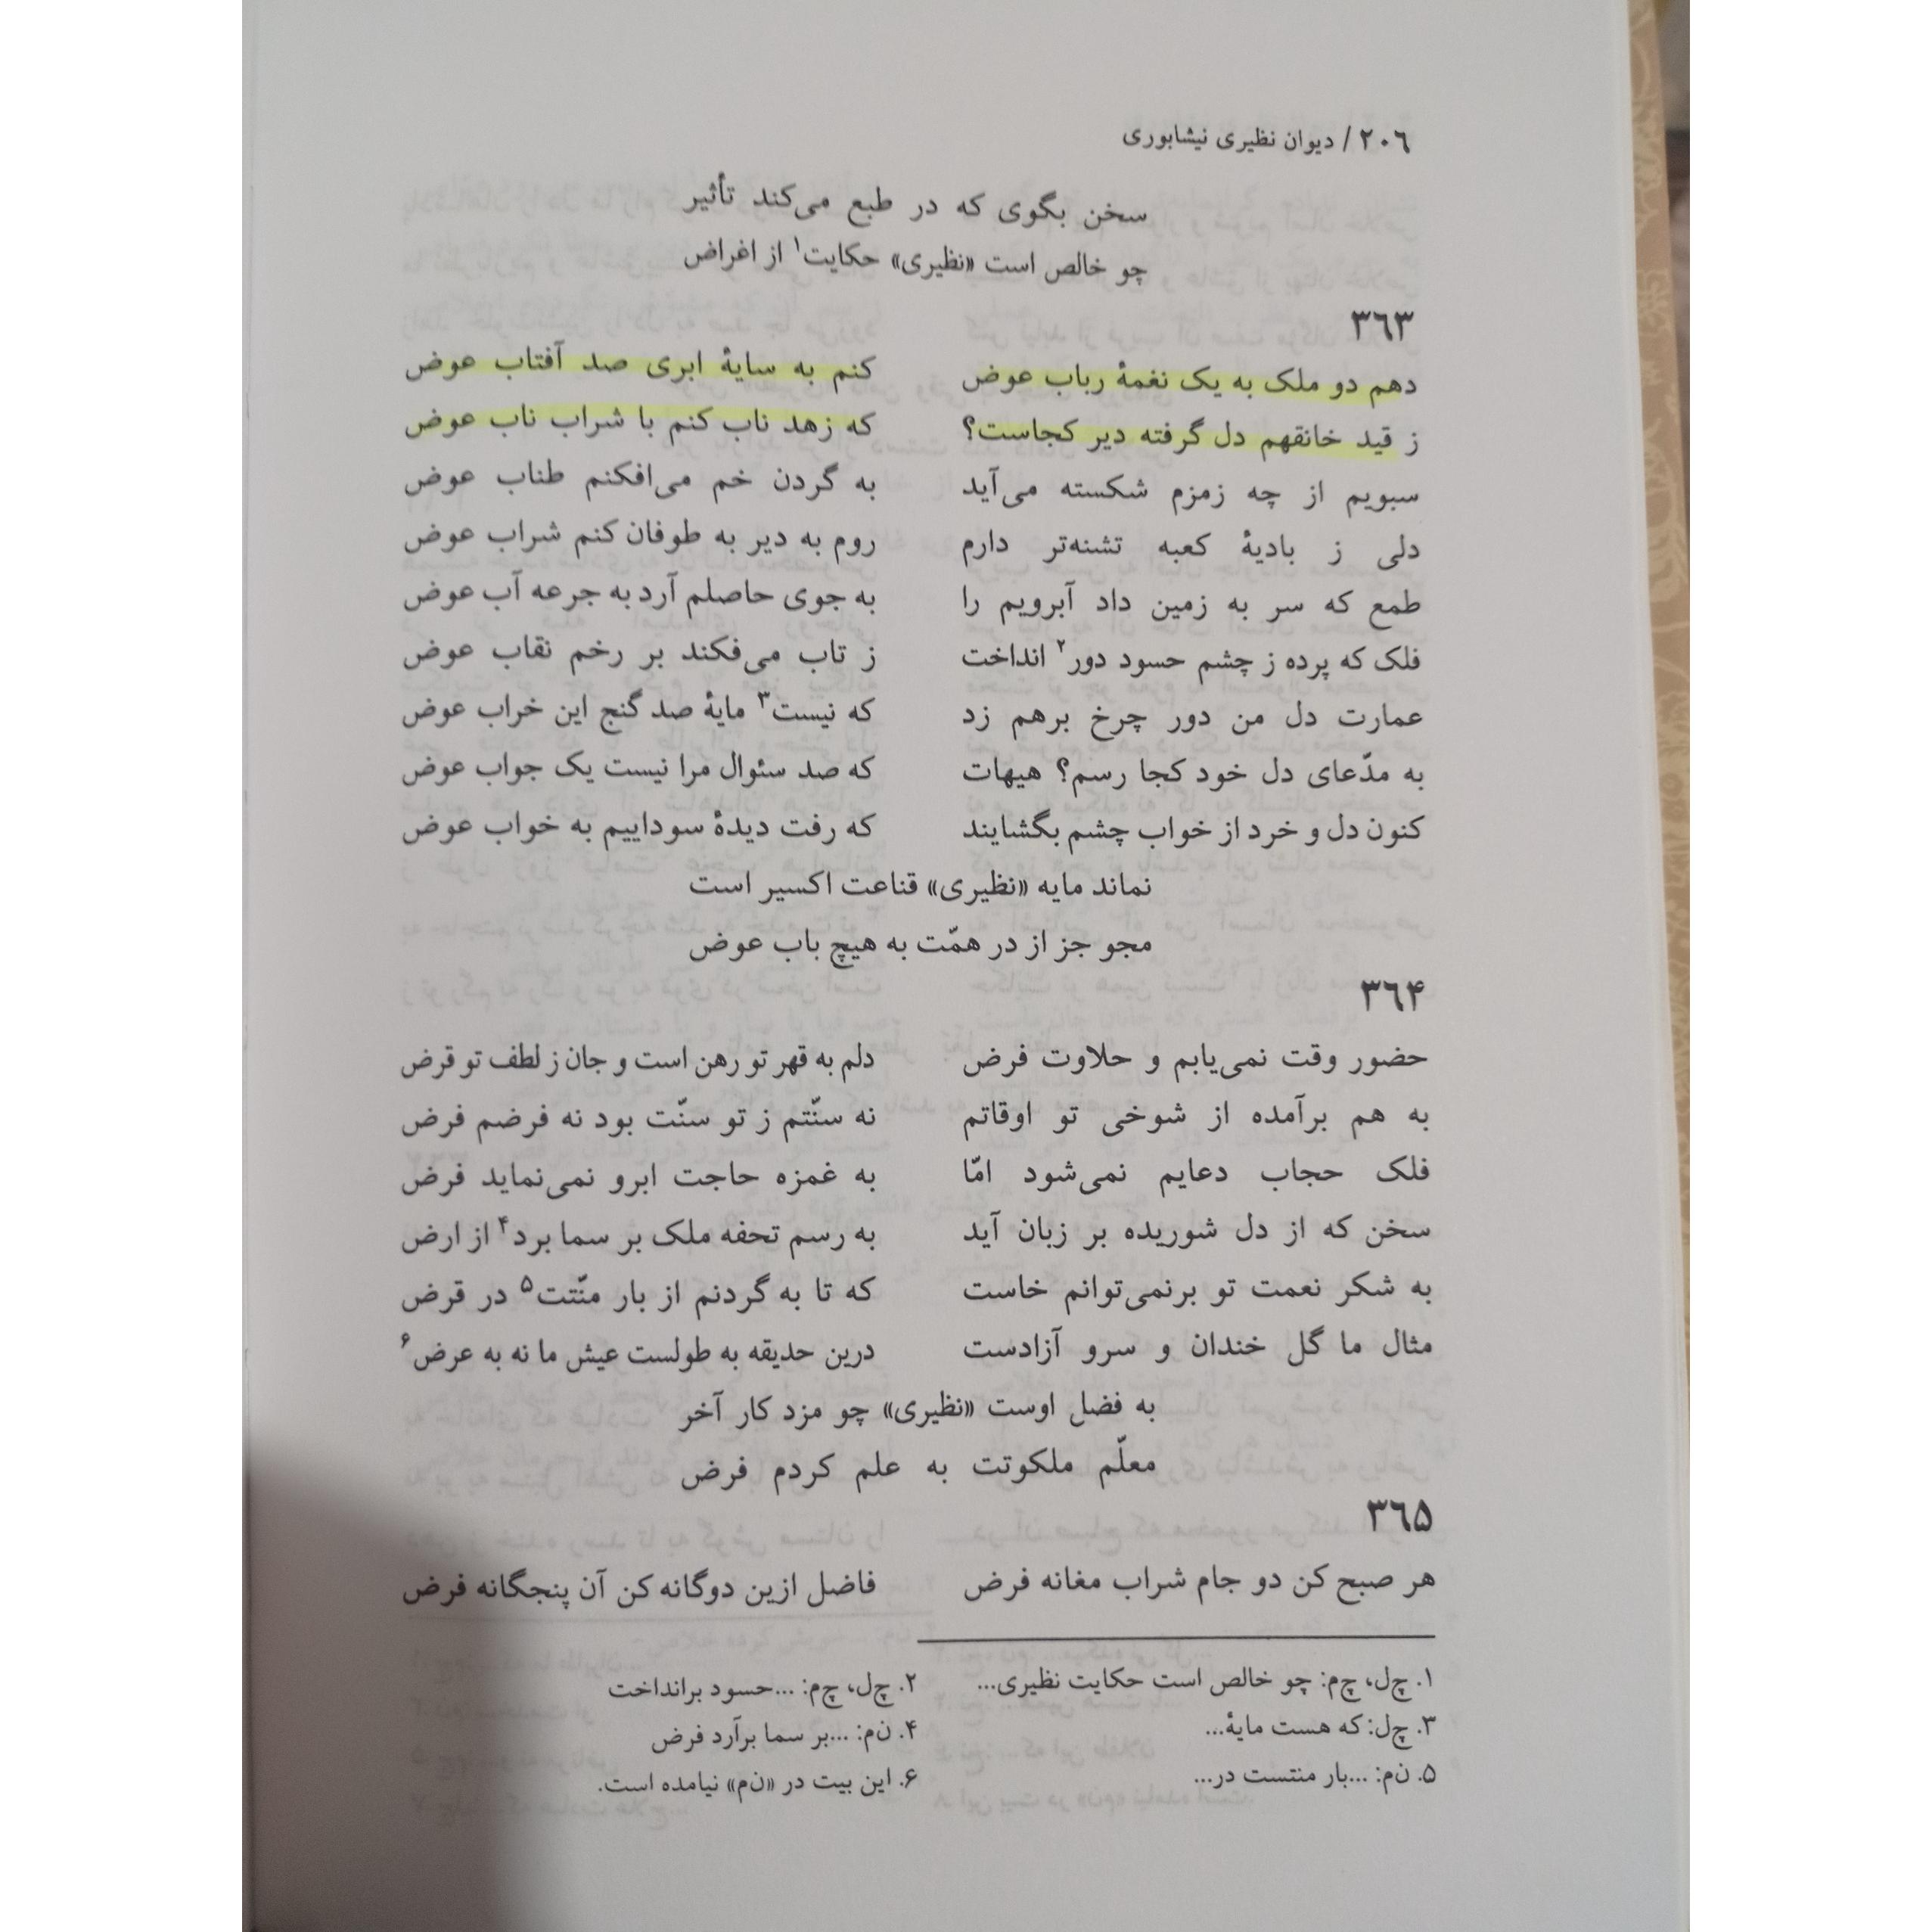 ۲۰۶ / دیوان نظیری نیشابوری
سخن بگوی که در طبع می‌کند تأثیر
چو خالص است «نظیری» حکایت۱ از اغراض
۳۶۳
دهم دو ملک به یک نغمهٔ رباب عوض کنم به سایهٔ ابری صد آفتاب عوض
ز قید خانقهم دل گرفته دیر کجاست؟ که زهد ناب کنم با شراب ناب عوض
سبویم از چه زمزم شکسته می‌آید به گردن خم می‌افکنم طناب عوض
دلی ز بادیهٔ کعبه تشنه‌تر دارم روم به دیر به طوفان کنم شراب عوض
طمع که سر به زمین داد آبرویم را به جوی حاصلم آرد به جرعه آب عوض
فلک که پرده ز چشم حسود دور۲ انداخت ز تاب می‌فکند بر رخم نقاب عوض
عمارت دل من دور چرخ برهم زد که نیست۳ مایهٔ صد گنج این خراب عوض
به مدّعای دل خود کجا رسم؟ هیهات که صد سئوال مرا نیست یک جواب عوض
کنون دل و خرد از خواب چشم بگشایند که رفت دیدهٔ سوداییم به خواب عوض
نماند مایه «نظیری» قناعت اکسیر است
مجو جز از در همّت به هیچ باب عوض
۳۶۴
حضور وقت نمی‌یابم و حلاوت فرض دلم به قهر تو رهن است و جان ز لطف تو قرض
به هم برآمده از شوخی تو اوقاتم نه سنّتم ز تو سنّت بود نه فرضم فرض
فلک حجاب دعایم نمی‌شود امّا به غمزه حاجت ابرو نمی‌نماید فرض
سخن که از دل شوریده بر زبان آید به رسم تحفه ملک بر سما برد۴ از ارض
به شکر نعمت تو برنمی‌توانم خاست که تا به گردنم از بار منّتت۵ در قرض
مثال ما گل خندان و سرو آزادست درین حدیقه به طولست عیش ما نه به عرض۶
به فضل اوست «نظیری» چو مزد کار آخر
معلّم ملکوتت به علم کردم فرض
۳۶۵
هر صبح کن دو جام شراب مغانه فرض فاضل ازین دوگانه کن آن پنجگانه فرض
۱. چ‌ل، چ‌م: چو خالص است حکایت نظیری... ۲. چ‌ل، چ‌م: ...حسود برانداخت
۳. چ‌ل: که هست مایهٔ... ۴. ن‌م: ...بر سما برآرد فرض
۵. ن‌م: ...بار منتست در... ۶. این بیت در «ن‌م» نیامده است.